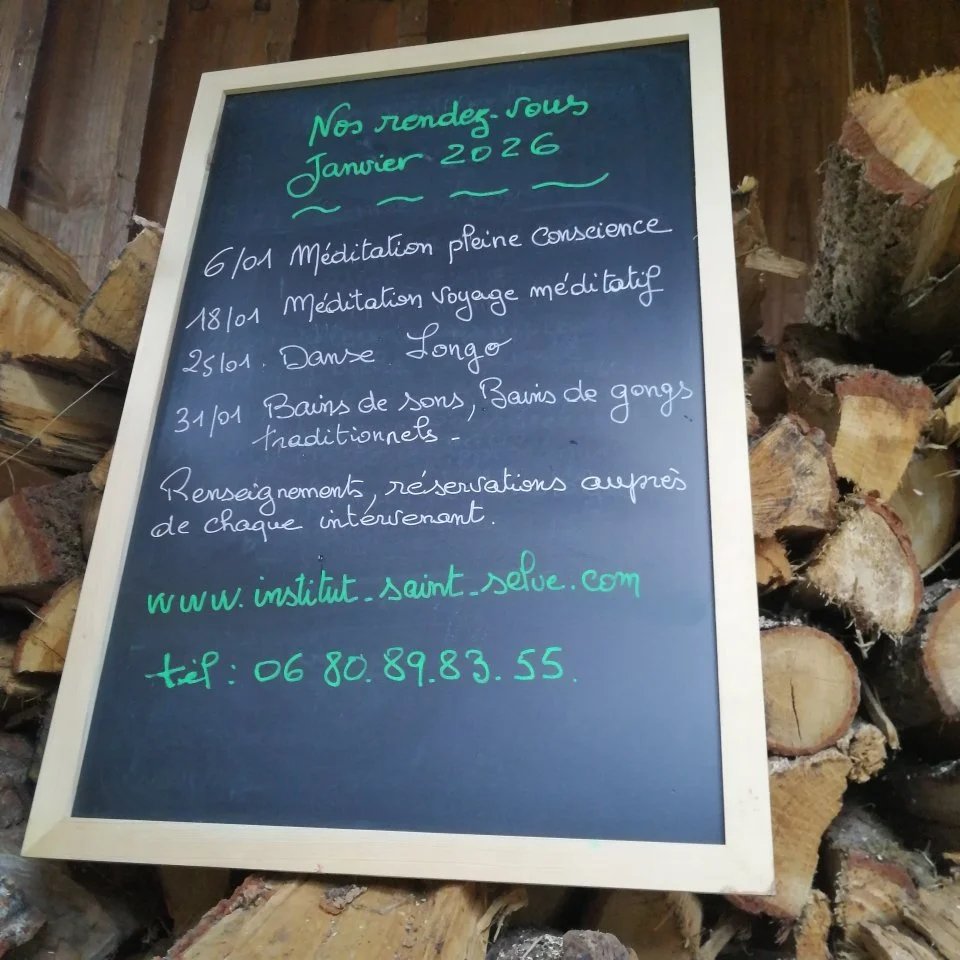 Nos rendez-vous
Janvier 2026
6/01 Méditation pleine conscience
18/01 Méditation voyage méditatif
25/01. Danse Longo
31/01 Bains de sons, Bains de gongs
traditionnels -
Renseignements, réservations auprès
de chaque intervenant.
www.institut_saint_selve.com
tél : 06 80. 89.83. 55.